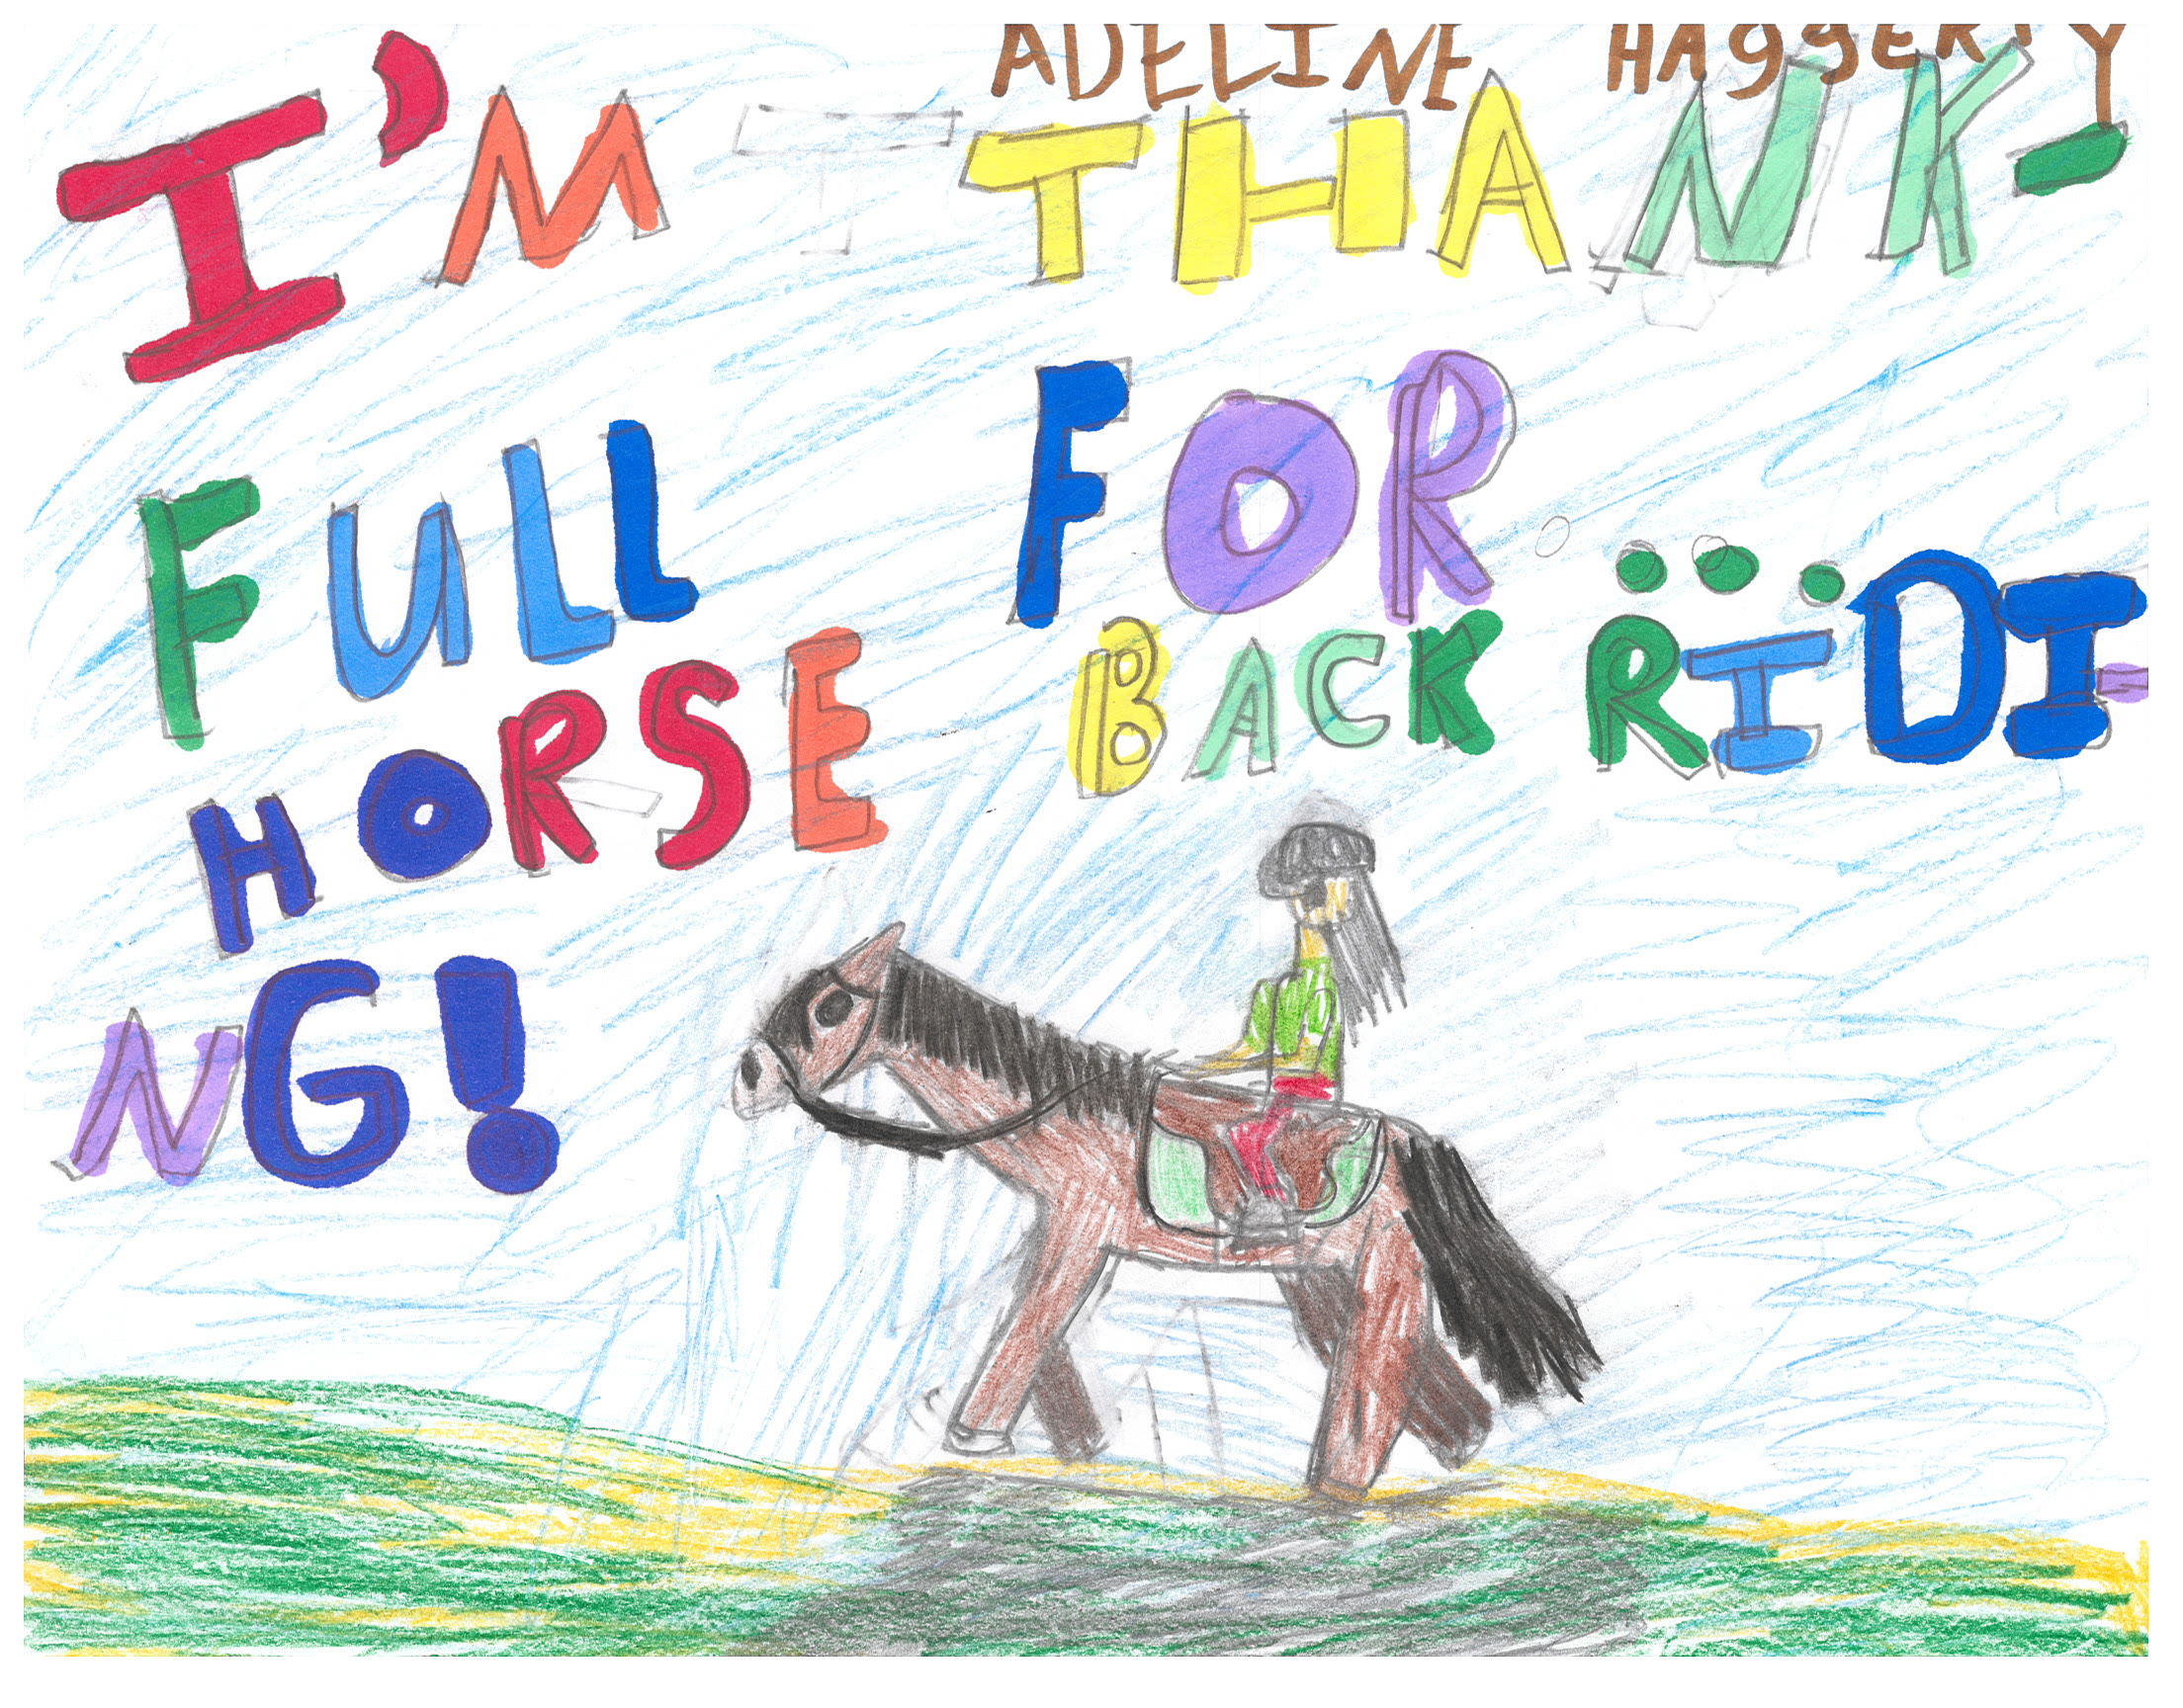 ADELINE HAGGERTY
I'M THANK-
FULL FOR...
HORSE BACK RIDI-
NG!